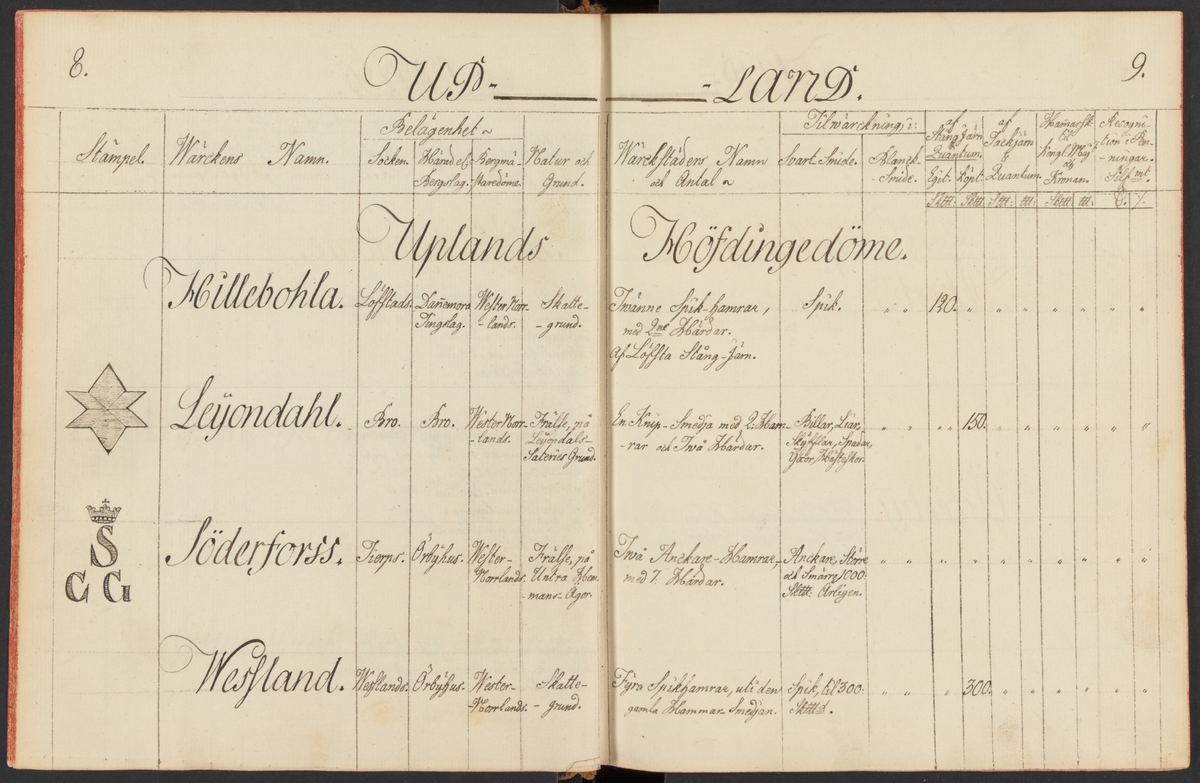 8.
9.
UP-
-LAND.
Stämpel.
Wärckens Namn.
Belägenhet
Socken.
Härad el.
Bergslag.
Bergmä-
staredöme.
Natur och
Grund.
Wärckstäders Namn
och Antal
Tilwärckning, i:
Svart Smide.
Blanck-
Smide.
af
Stång Järn
Quantum.
Egit:
Köpt:
af
Tackjärn
Quantum.
Hammarsk:
til
Kongl. Maÿ:
och
Kronan.
Recogni-
tions Pen-
-ningar.
Silf. mt.
Uplands Höfdingedöme.
Hillebohla.
Löfstads.
Dan̄emora
Tingslag.
Wester Norr-
-lands.
Skatte-
-grund.
Twänne Spik-hamrar,
med 2ne Härdar.
Af Löfsta Stång-Järn.
Spik.
130.
Leÿondahl.
Bro.
Bro.
Wester Norr-
-lands.
Frälse, på
Leÿondals-
Säteries Grund.
En Knip-Smedja med 2: Ham-
-rar och Twå Härdar.
Billar, Liar,
Skÿfflar, Spadar,
Ÿxor, Hästeskor.
150.
S
C G
Söderforss.
Tierps.
Örbÿhus.
Wester-
Norrlands.
Frälse, på
Untra Hem-
-mans-Ägor.
Twå Anckare-Hamrar,
med 7. Härdar.
Anckare, Större
och Smärre 1000:
Skttt: Årligen.
Wessland.
Wesslands.
Örbÿhus.
Wester-
-Norrlands.
Skatte-
-grund.
Fÿra Spikhamrar, uti den
gamla Hammar-Smedjan.
Spik, til 300:
Sktttd.
300.